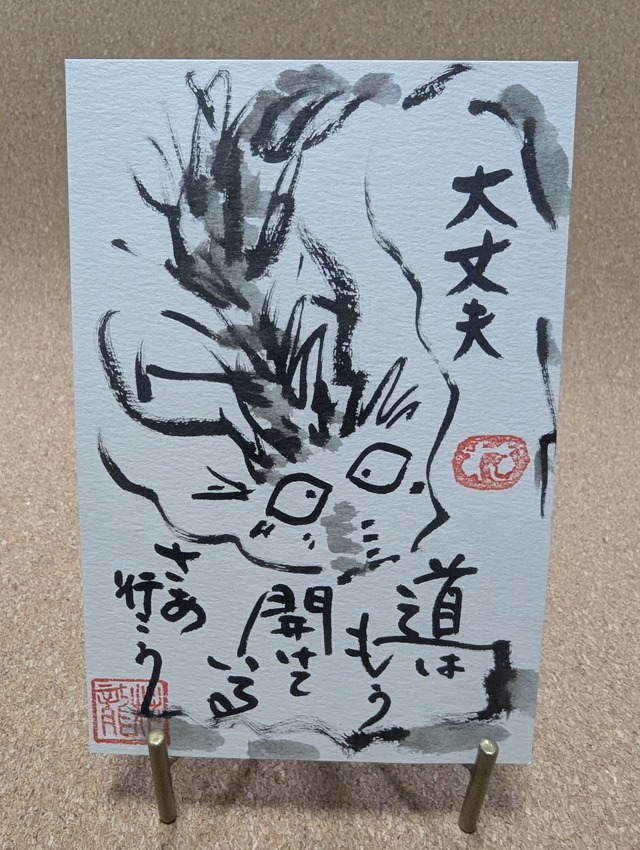 大丈夫
道は
もう
開けて
いる
さあ
行こう